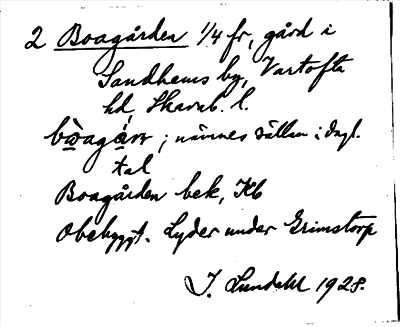 2 Boagården 1/4 fr, gård i
Sandhems by, Vartofta
hd, Skarab. l.
bò̲agá̲ṇ ; nämnes sällan i dagl.
tal
Boagården bek, Kb
Obebyggt. Lyder under Grimstorp
I. Lundahl 1928.